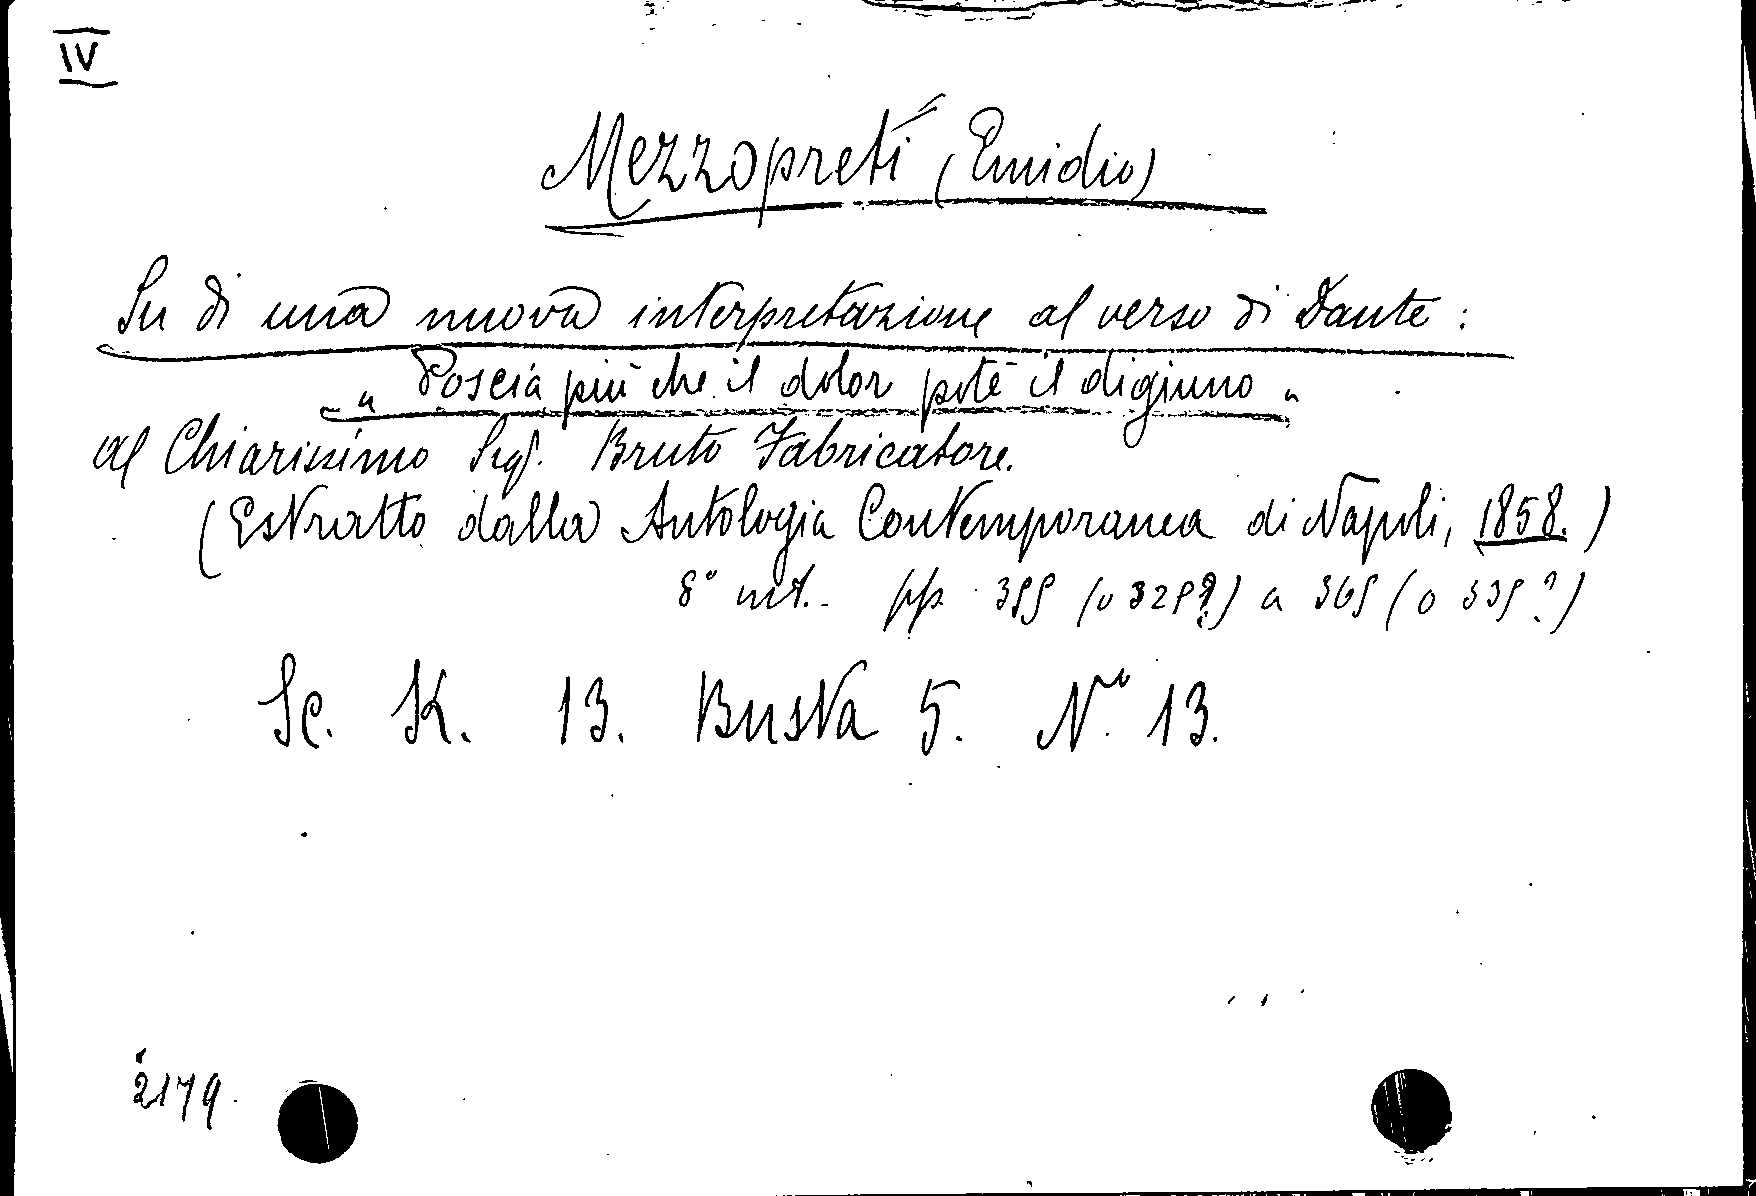 IV
Mezzopreti (Emidio)
Su di una nuova interpretazione al verso di Dante:
" Poscia più che il dolor potè il digiuno "
al Chiarissimo Sig. Bruto Fabricatore.
(Estratto dalla Antologia Contemporanea di Napoli, 1858.)
8° pp. a
Sc. K. 13. Busta 5. No. 13.
2179.